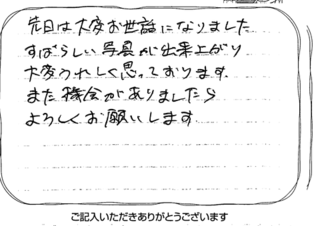 先日は大変お世話になりました
すばらしい写真が出来上がり
大変うれしく思っております.
また機会がありましたら
よろしくお願いします.
ご記入いただきありがとうございます